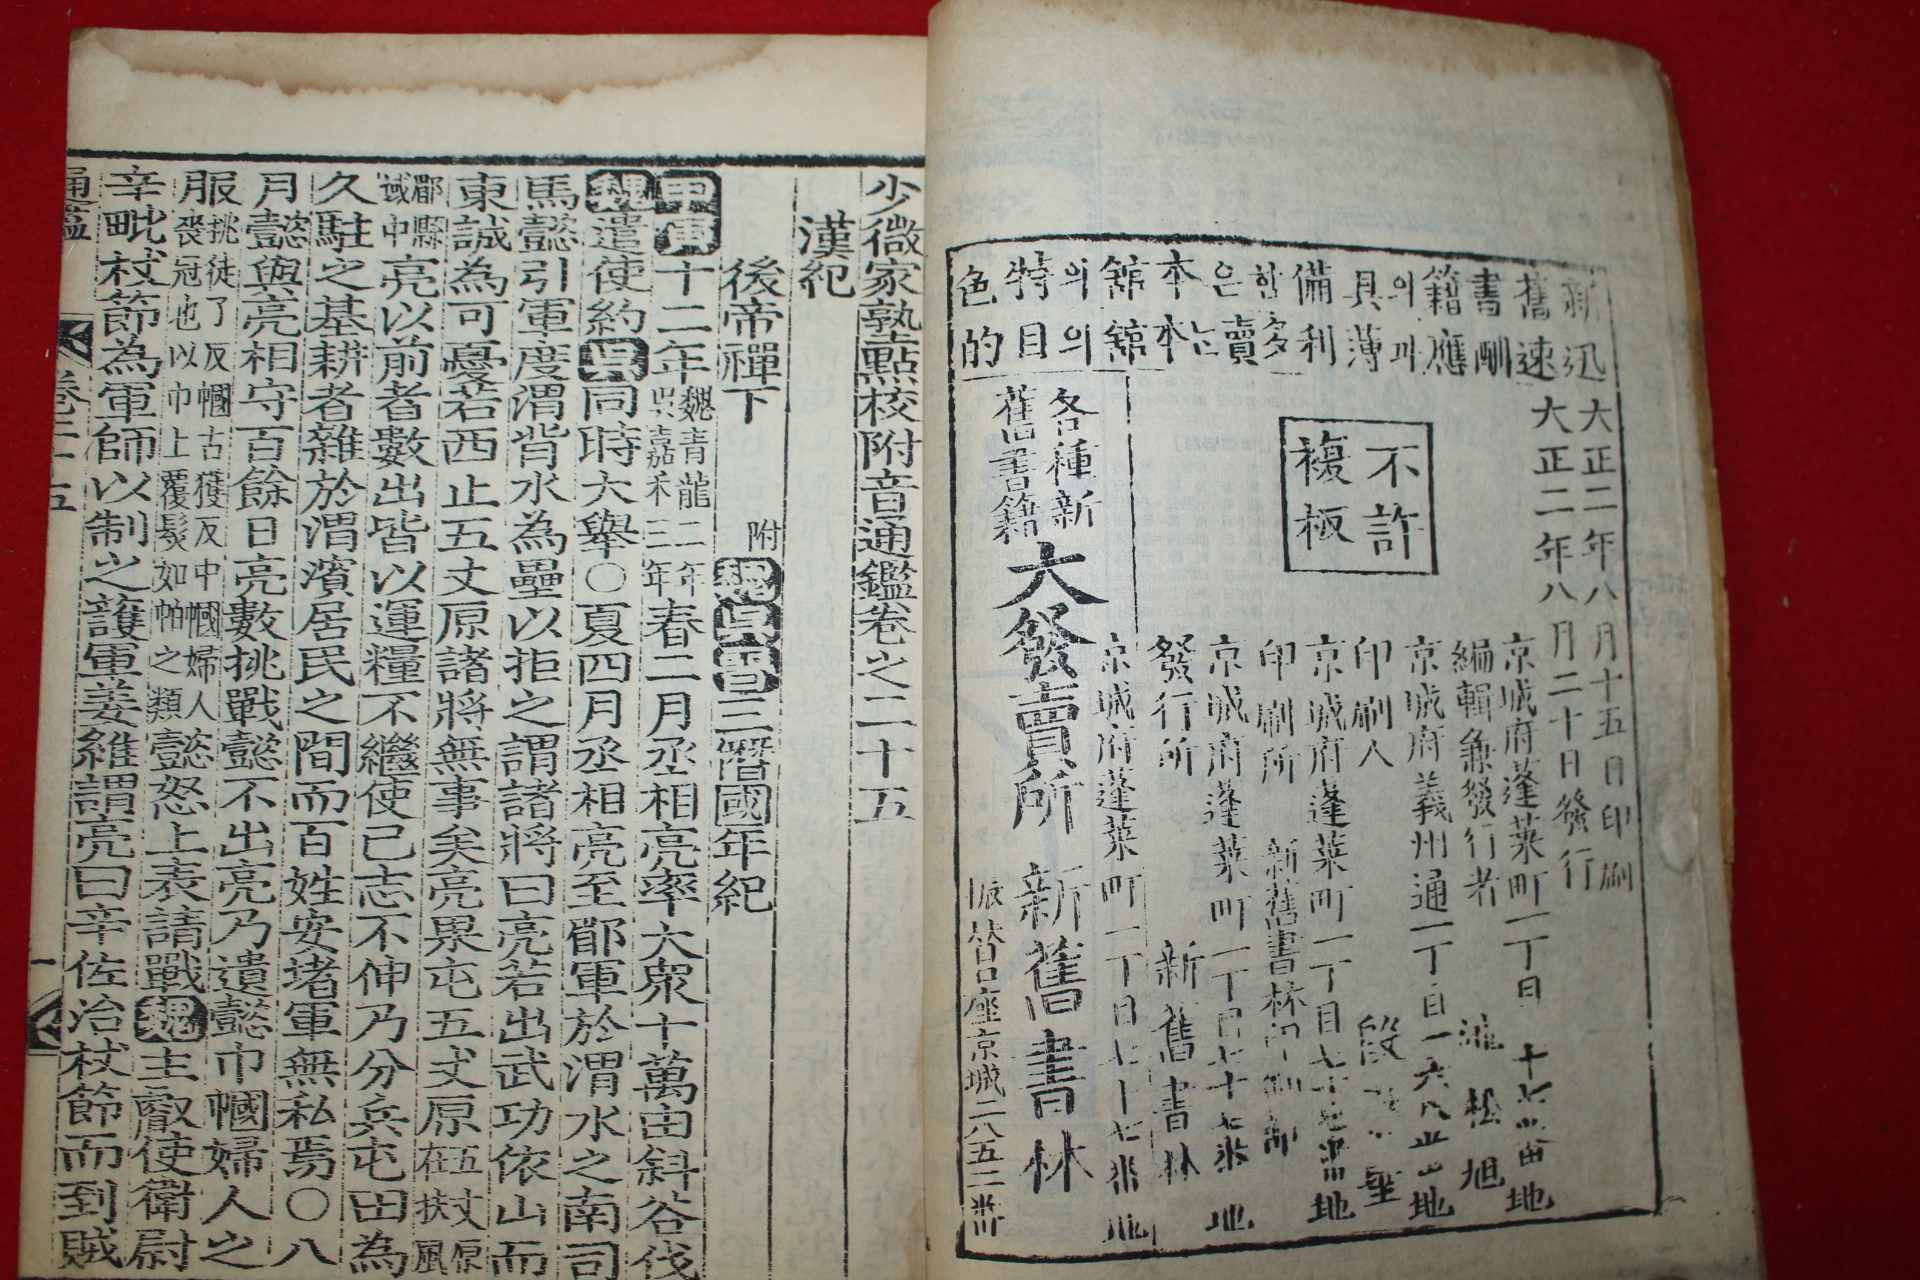 新舊書籍의具備한은本館의特色
迅速酬應의薄利多賣는本館의目的
大正二年八月十五日印刷
大正二年八月二十日發行
不許複板
京城府蓬萊町一丁目 十七番地
編輯兼發行者 池松旭
京城府義州通一丁目一六八番地
印刷人
京城府蓬萊町一丁目七十七番地
印刷所 新舊書林印刷部
京城府蓬萊町一丁目七十七番地
發行所 新舊書林
京城府蓬萊町一丁目七十七番地
各種新舊書籍
大發賣所 新舊書林
振替口座京城二八五二番
少微家塾點校附音通鑑卷之二十五
漢紀
後帝禪下 附魏吳晉三僭國年紀
甲寅十二年魏青龍二年吳嘉禾三年春二月丞相亮率大衆十萬由斜谷伐
魏遣使約吳同時大舉○夏四月丞相亮至郿軍於渭水之南司
馬懿引軍度渭背水為壘以拒之謂諸將曰亮若出武功依山而
東誠為可憂若西止五丈原諸將無事矣亮果屯五丈原在五丈原扶風
郿縣域中亮以前者數出皆以運糧不繼使己志不伸乃分兵屯田為
久駐之基耕者雜於渭濱居民之間而百姓安堵軍無私焉○八
月懿與亮相守百餘日亮數挑戰懿不出亮乃遺懿巾幗婦人之
服挑徒了反幗古獲反中幗婦人喪冠也以巾上覆髮如帕之類懿怒上表請戰魏主叡使衛尉
辛毗杖節為軍師以制之護軍姜維謂亮曰辛佐治杖節而到賊
通鑑 卷二十五 一